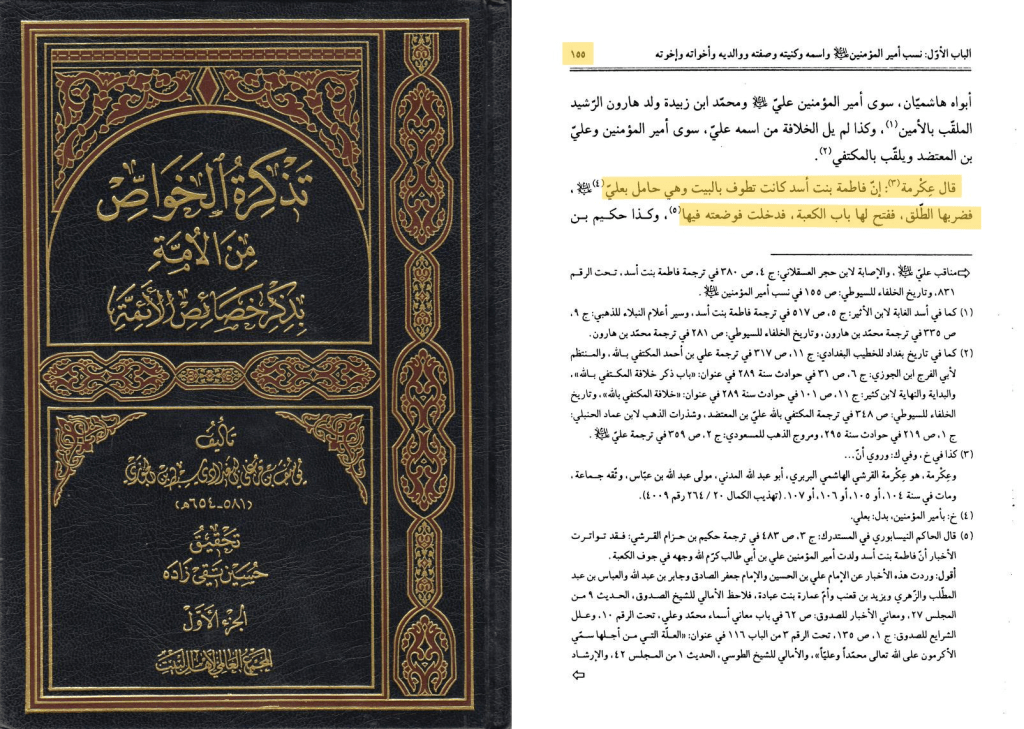 تذكرة الخواص
من الأمة
بذكر خصائص الأئمة
تأليف
(٥٨١-٦٥٤هـ)
تحقيق
حسين تقي زاده
الجزء الأول
المجمع العالمي لأهل البيت
الباب الأوّل: نسب أمير المؤمنين ﷺ واسمه وكنيته وصفته ووالديه وأخواته وإخوته
١٥٥
أبواه هاشميّان، سوى أمير المؤمنين عليّ ﷺ ومحمّد ابن زبيدة ولد هارون الرّشيد
الملقّب بالأمين(١)، وكذا لم يل الخلافة من اسمه عليّ، سوى أمير المؤمنين وعليّ
بن المعتضد ويلقّب بالمكتفي(٢).
قال عِكْرمة(٣): إنّ فاطمة بنت أسد كانت تطوف بالبيت وهي حامل بعليّ(٤) ﷺ،
فضربها الطّلق، ففتح لها باب الكعبة، فدخلت فوضعته فيها(٥)، وكذا حكيم بن
⇦مناقب عليّ ﷺ، والإصابة لابن حجر العسقلاني: ج ٤، ص ٣٨٠ في ترجمة فاطمة بنت أسد، تحت الرقم
٨٣١، وتاريخ الخلفاء للسيوطي: ص ١٥٥ في نسب أمير المؤمنين ﷺ.
(١) كما في أسد الغابة لابن الأثير: ج ٥، ص ٥١٧ في ترجمة فاطمة بنت أسد، وسير أعلام النبلاء للذهبي: ج ٩،
ص ٣٣٥ في ترجمة محمّد بن هارون، وتاريخ الخلفاء للسيوطي: ص ٢٨١ في ترجمة محمّد بن هارون.
(٢) كما في تاريخ بغداد للخطيب البغدادي: ج ١١، ص ٣١٧ في ترجمة علي بن أحمد المكتفي بالله، والمنتظم
لأبي الفرج ابن الجوزي: ج ٦، ص ٣١ في حوادث سنة ٢٨٩ في عنوان: «باب ذكر خلافة المكتفي بالله»،
والبداية والنهاية لابن كثير: ج ١١، ص ١٠١ في حوادث سنة ٢٨٩ في عنوان: «خلافة المكتفي بالله»، وتاريخ
الخلفاء للسيوطي: ص ٣٤٨ في ترجمة المكتفي بالله عليّ بن المعتضد، وشذرات الذهب لابن عماد الحنبلي:
ج ١، ص ٢١٩ في حوادث سنة ٢٩٥، ومروج الذهب للمسعودي: ج ٢، ص ٣٥٩ في ترجمة عليّ ﷺ.
(٣) كذا في خ، وفي ك: وروي أنّ...
وعِكْرمة، هو عِكْرمة القرشي الهاشمي البربري، أبو عبد الله المدني، مولى عبد الله بن عبّاس، وثّقه جماعة،
ومات في سنة ١٠٤، أو ١٠٥، أو ١٠٦، أو ١٠٧. (تهذيب الكمال ٢٠ / ٢٦٤ رقم ٤٠٠٩).
(٤) خ: بأمير المؤمنين، بدل: بعلي.
(٥) قال الحاكم النيسابوري في المستدرك: ج ٣، ص ٤٨٣ في ترجمة حكيم بن حزام القرشي: فقد تواترت
الأخبار أنّ فاطمة بنت أسد ولدت أمير المؤمنين علي بن أبي طالب كرّم الله وجهه في جوف الكعبة.
أقول: وردت هذه الأخبار عن الإمام علي بن الحسين والإمام جعفر الصادق وجابر بن عبد الله والعباس بن عبد
المطّلب والزّهري ويزيد بن قعنب وأمّ عمارة بنت عبادة، فلاحظ الأمالي للشيخ الصدوق، الحديث ٩ من
المجلس ٢٧، ومعاني الأخبار للصدوق: ص ٦٢ في باب معاني أسماء محمّد وعلي، تحت الرقم ١٠، وعلل
الشرايع للصدوق: ج ١، ص ١٣٥، تحت الرقم ٣ من الباب ١١٦ في عنوان: «العلّة التي من أجلها سمّي
الأكرمون على الله تعالى محمّداً وعليّاً»، والأمالي للشيخ الطوسي، الحديث ١ من المجلس ٤٢، والإرشاد
⇦